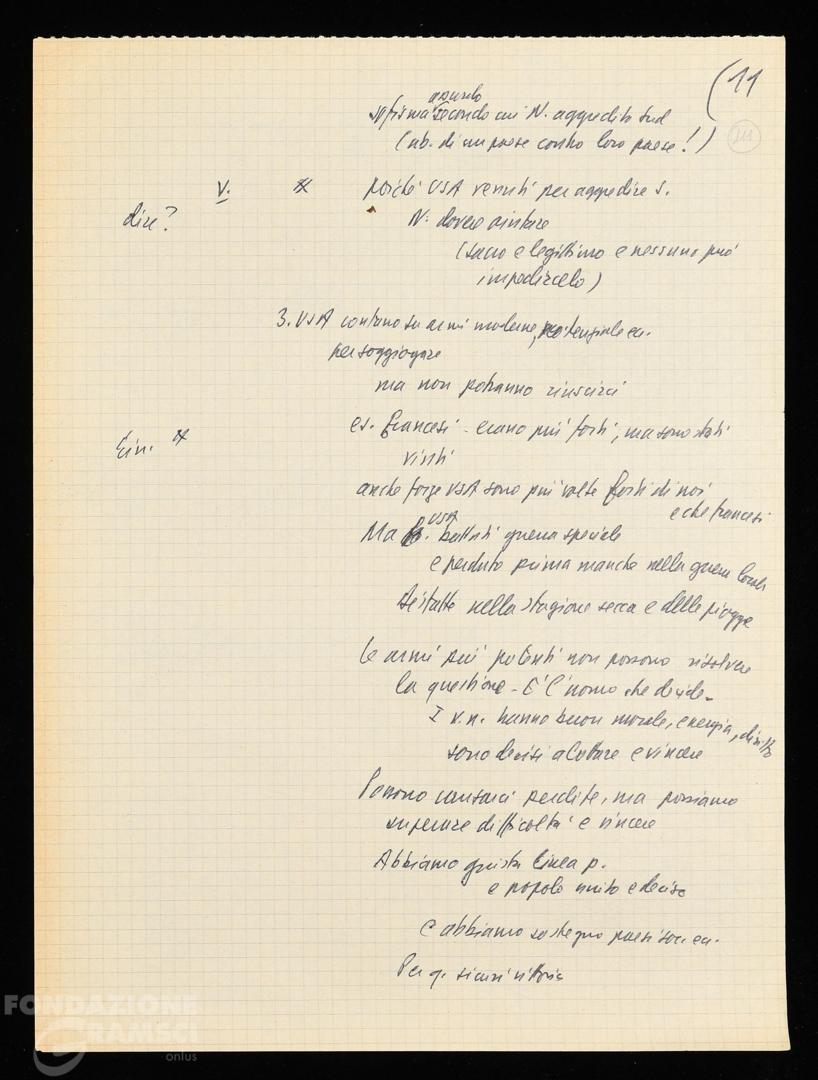 (11
assurdo
sofisma secondo cui N. aggredito Sud
(ab. di un paese contro loro paese!)
V. * poiché USA venuti per aggredire S.
dire?
N. dovere aiutare
(sacro e legittimo e nessuno può
impedircelo)
3. USA contano su armi moderne, potenziale ec.
per soggiogare
ma non potranno riuscirci
es. francesi - erano più forti, ma sono stati
vinti
anche forze USA sono più volte forti di noi
e che francesi
Ma USA battuti guerra speciale
e perduto prima manche nella guerra locale
disfatte nella stagione secca e delle piogge
Le armi più potenti non possono risolvere
la questione - È l'uomo che decide -
I v.n. hanno buon morale, energia, diritto
sono decisi a lottare e vincere
Possono causarci perdite, ma possiamo
superare difficoltà e vincere
Abbiamo giusta linea p.
e popolo unito e deciso
e abbiamo sostegno paesi soc. ec.
Per q. sicuri vittoria
FONDAZIONE
GRAMSCI
onlus